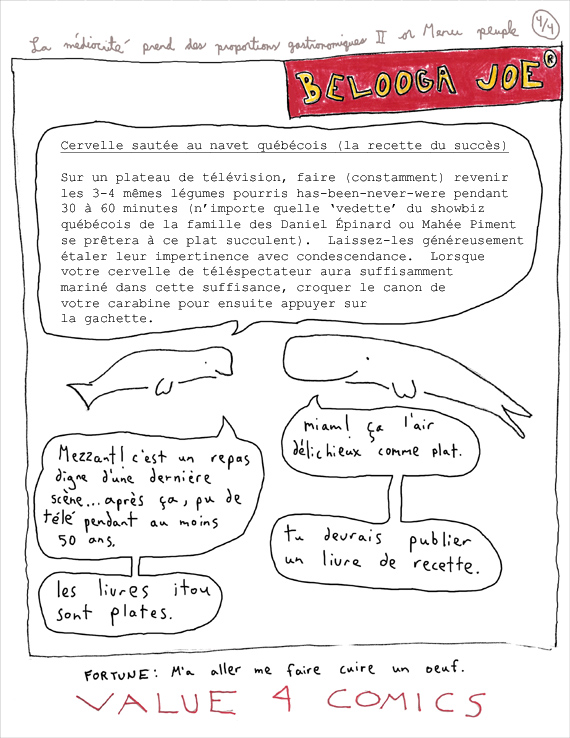 La médiocrité prend des proportions gastronomiques II or Menu peuple
4/4
BELOOGA JOE®
Cervelle sautée au navet québécois (la recette du succès)
Sur un plateau de télévision, faire (constamment) revenir
les 3-4 mêmes légumes pourris has-been-never-were pendant
30 à 60 minutes (n’importe quelle ‘vedette’ du showbiz
québécois de la famille des Daniel Épinard ou Mahée Piment
se prêtera à ce plat succulent).  Laissez-les généreusement
étaler leur impertinence avec condescendance.  Lorsque
votre cervelle de téléspectateur aura suffisamment
mariné dans cette suffisance, croquer le canon de
votre carabine pour ensuite appuyer sur
la gachette.
miam! ça l'air
délichieux comme plat.
Mezzant! c'est un repas
digne d'une dernière
scène... après ça, pu de
télé pendant au moins
50 ans.
tu devrais publier
un livre de recette.
les livres itou
sont plates.
FORTUNE: M'a aller me faire cuire un oeuf.
VALUE 4 COMICS